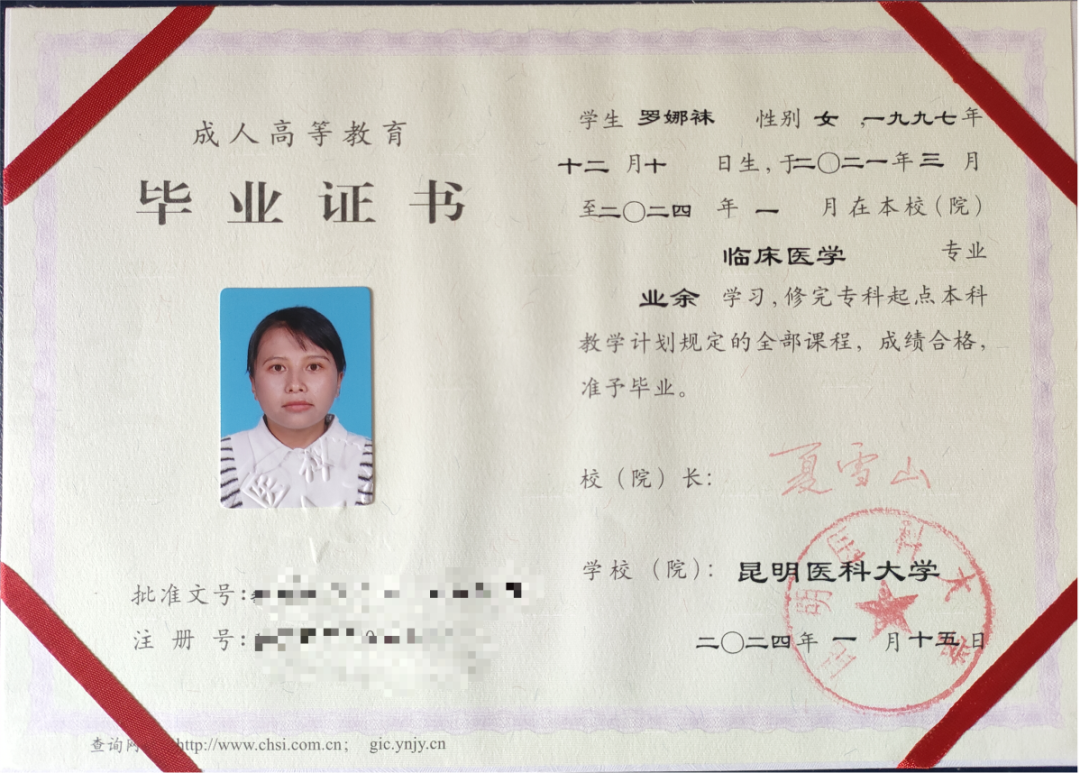 成人高等教育
毕业证书
医科
批准文号：
注册号：
查询网 http://www.chsi.com.cn； gic.ynjy.cn
学生 罗娜袜 性别 女 ，一九九七年
十二 月十 日生，于二〇二一年三 月
至二〇二四 年 一 月在本校（院）
临床医学 专业
业余 学习，修完专科起点本科
教学计划规定的全部课程，成绩合格，
准予毕业。
校（院）长： 夏雪山
学校（院）： 昆明医科大学
二〇二四年 一 月十五日
明医科大学